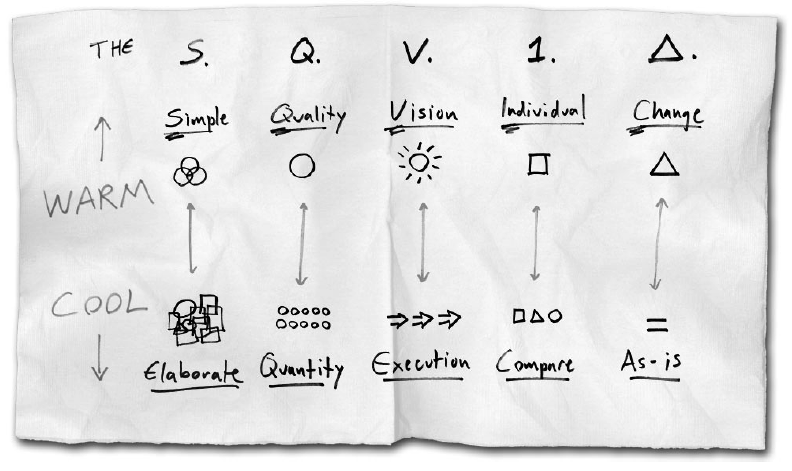 THE S. Q. V. 1. Δ.
Simple Quality Vision Individual Change
WARM
COOL
Elaborate Quantity Execution Compare As-is